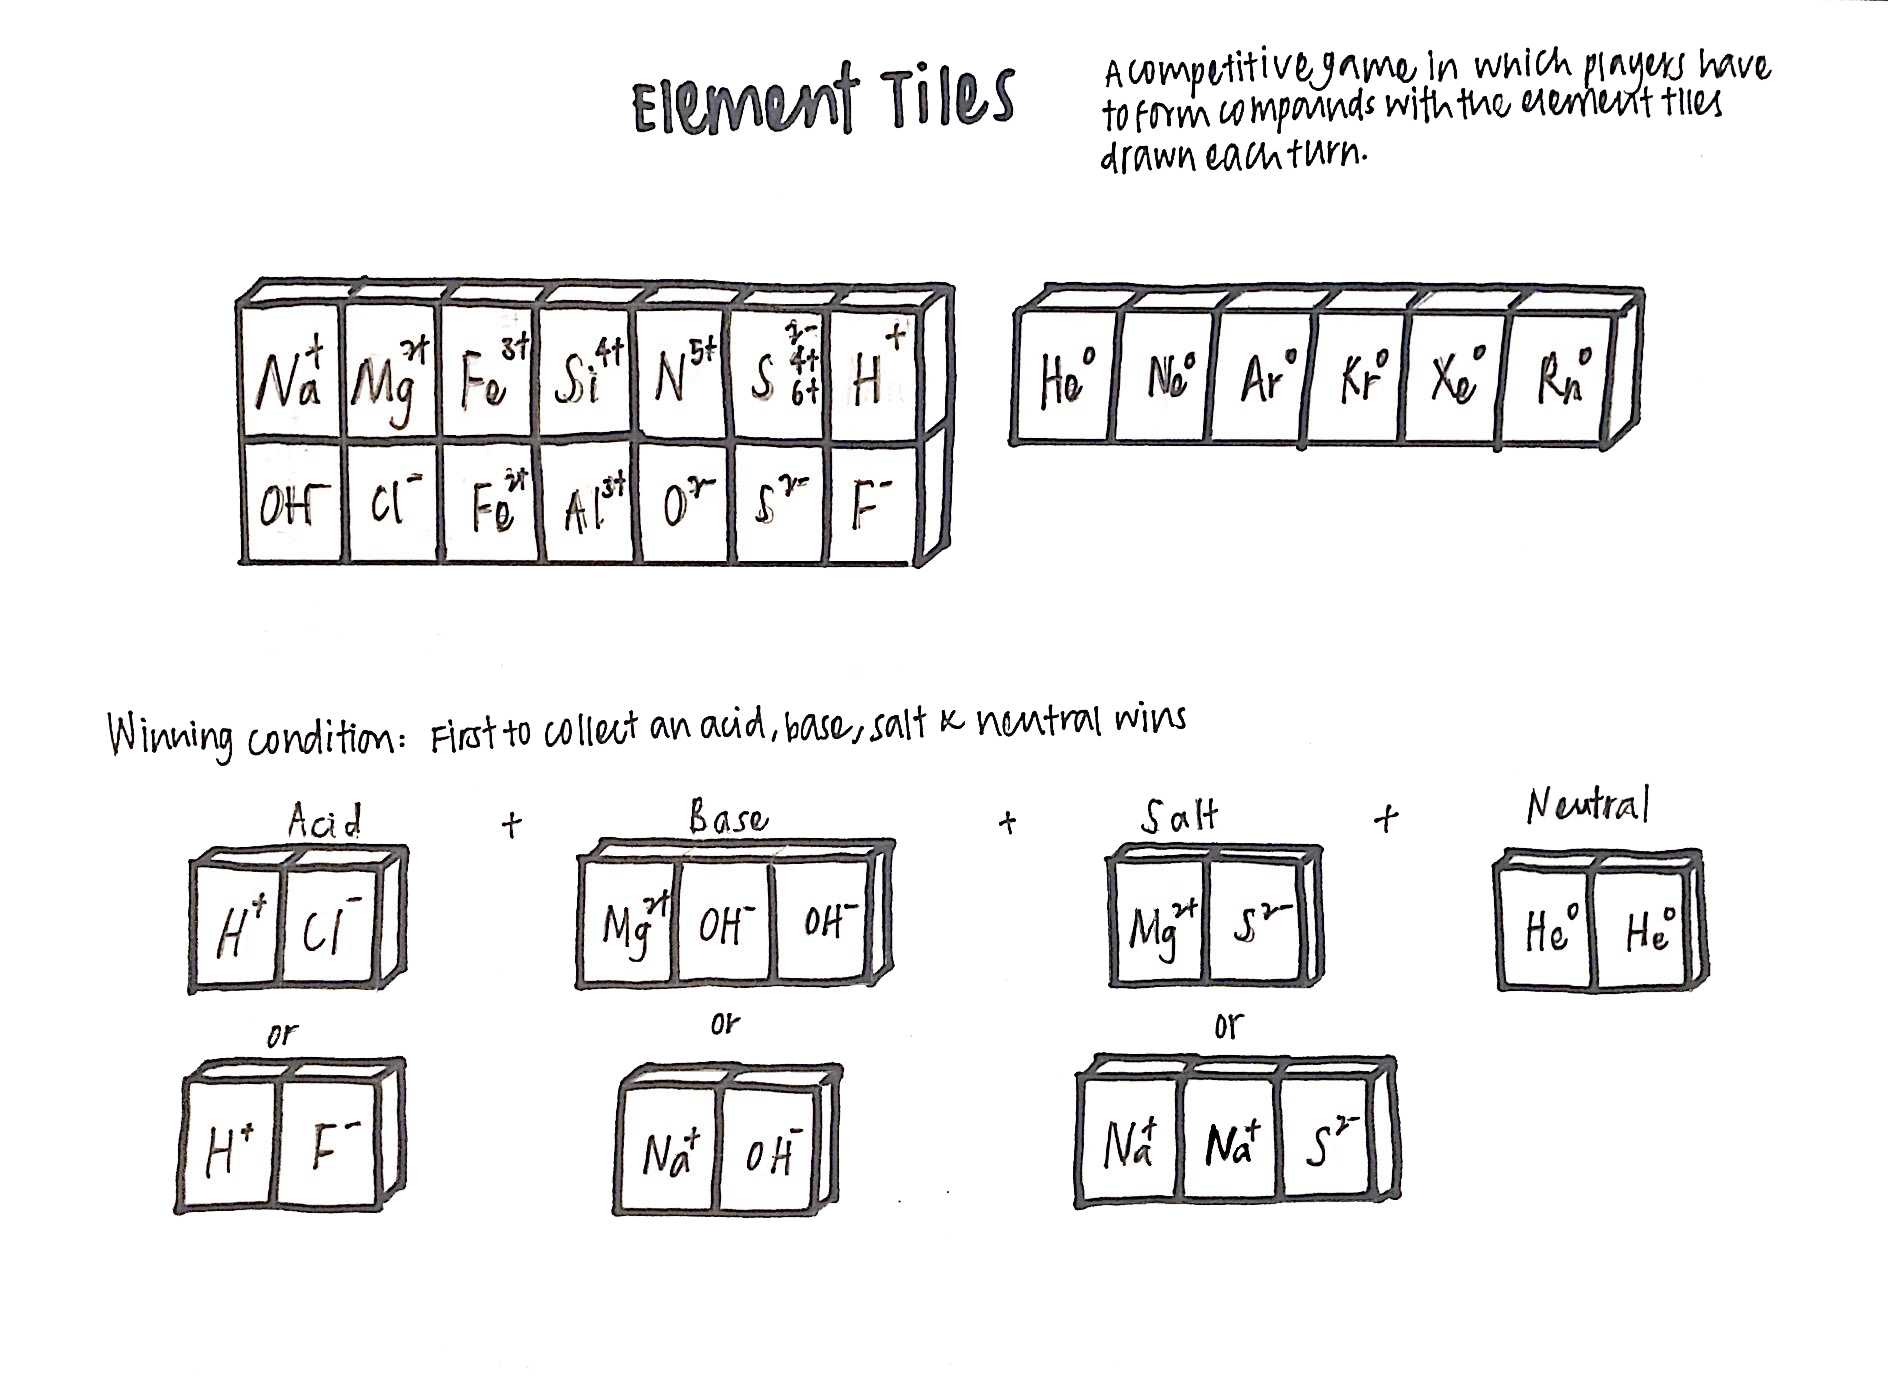 Element Tiles
A competitive game in which players have
to form compounds with the element tiles
drawn each turn.
Na⁺ Mg²⁺ Fe³⁺ Si⁴⁺ N⁵⁺ S²⁻ ⁴⁺ ⁶⁺ H⁺
OH⁻ Cl⁻ Fe²⁺ Al³⁺ O²⁻ S²⁻ F⁻
He⁰ Ne⁰ Ar⁰ Kr⁰ Xe⁰ Rn⁰
Winning condition: First to collect an acid, base, salt & neutral wins
Acid + Base + Salt + Neutral
H⁺ Cl⁻
Mg²⁺ OH⁻ OH⁻
Mg²⁺ S²⁻
He⁰ He⁰
or
or
or
H⁺ F⁻
Na⁺ OH⁻
Na⁺ Na⁺ S²⁻